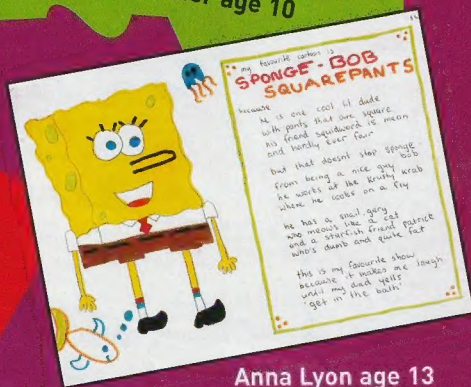 age 10
my favourite cartoon is
SPONGE-BOB
SQUAREPANTS
because
he is one cool lil dude
with pants that are square
his friend squidword is mean
and hardly ever fair
but that doesnt stop sponge
bob
from being a nice guy
he works at the krusty krab
where he cooks on a fry
he has a snail, gary
who meows like a cat
and a starfish friend patrick
who's dumb and quite fat
this is my favourite show
because it makes me laugh
until my dad yells
'get in the bath'
Anna Lyon age 13